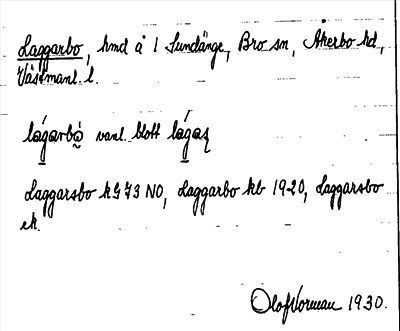 Laggarbo, hmd å 1 Sundänge, Bro sn, Åkerbo hd,
Västmanl. l.
lágarbò̤ vanl. blott lágaʂ
Laggarsbo kG 73 NO, Laggarbo kb 19-20, Laggarsbo
ek.
Olof Norman 1930.